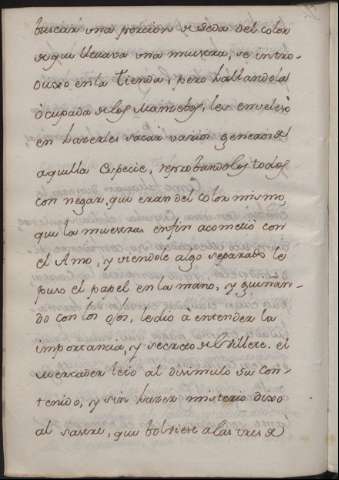 buscar una porcion de seda del color
de que llevava una muestra, se intro-
duxo en la Tienda, pero hallandola
ocupada de los Mancebos, les
en haverles sacar varios generos de
aquella especie, reprobandolos todos
con negar, que eran del color mismo
que la muestra: en fin acometio con
el Amo, y viendole algo separado le
puso el papel en la mano, y guiñan-
do con los ojos, le dió à entender la
importancia, y secreto del villete. el
Mercader leió al disimulo su con-
tenido, y sin hazer misterio dixo
al sastre, que bolviese a las tres de